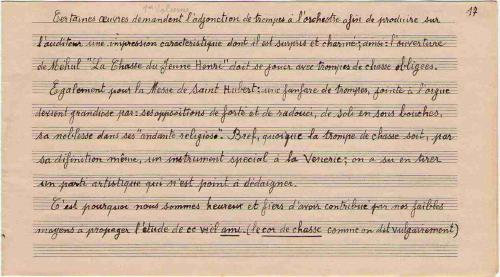 1er Volume
17
Certaines œuvres demandent l'adjonction de trompes à l'orchestre afin de produire sur
l'auditeur une impression caractéristique dont il est surpris et charmé; ainsi: l'ouverture
de Méhul "La Chasse du Jeune Henri" doit se jouer avec trompes de chasse obligées.
Egalement pour la Messe de Saint Hubert: une fanfare de trompes, jointe à l'orgue
devient grandiose par: ses oppositions de forte et de radouci, de solo en sons bouchés,
sa noblesse dans ses "andante religioso". Bref, quoique la trompe de chasse soit, par
sa définition même, un instrument spécial à la Vénerie; on a su en tirer
un parti artistique qui n'est point à dédaigner.
C'est pourquoi nous sommes heureux et fiers d'avoir contribué par nos faibles
moyens à propager l'étude de ce vieil ami. (le cor de chasse comme on dit vulgairement)